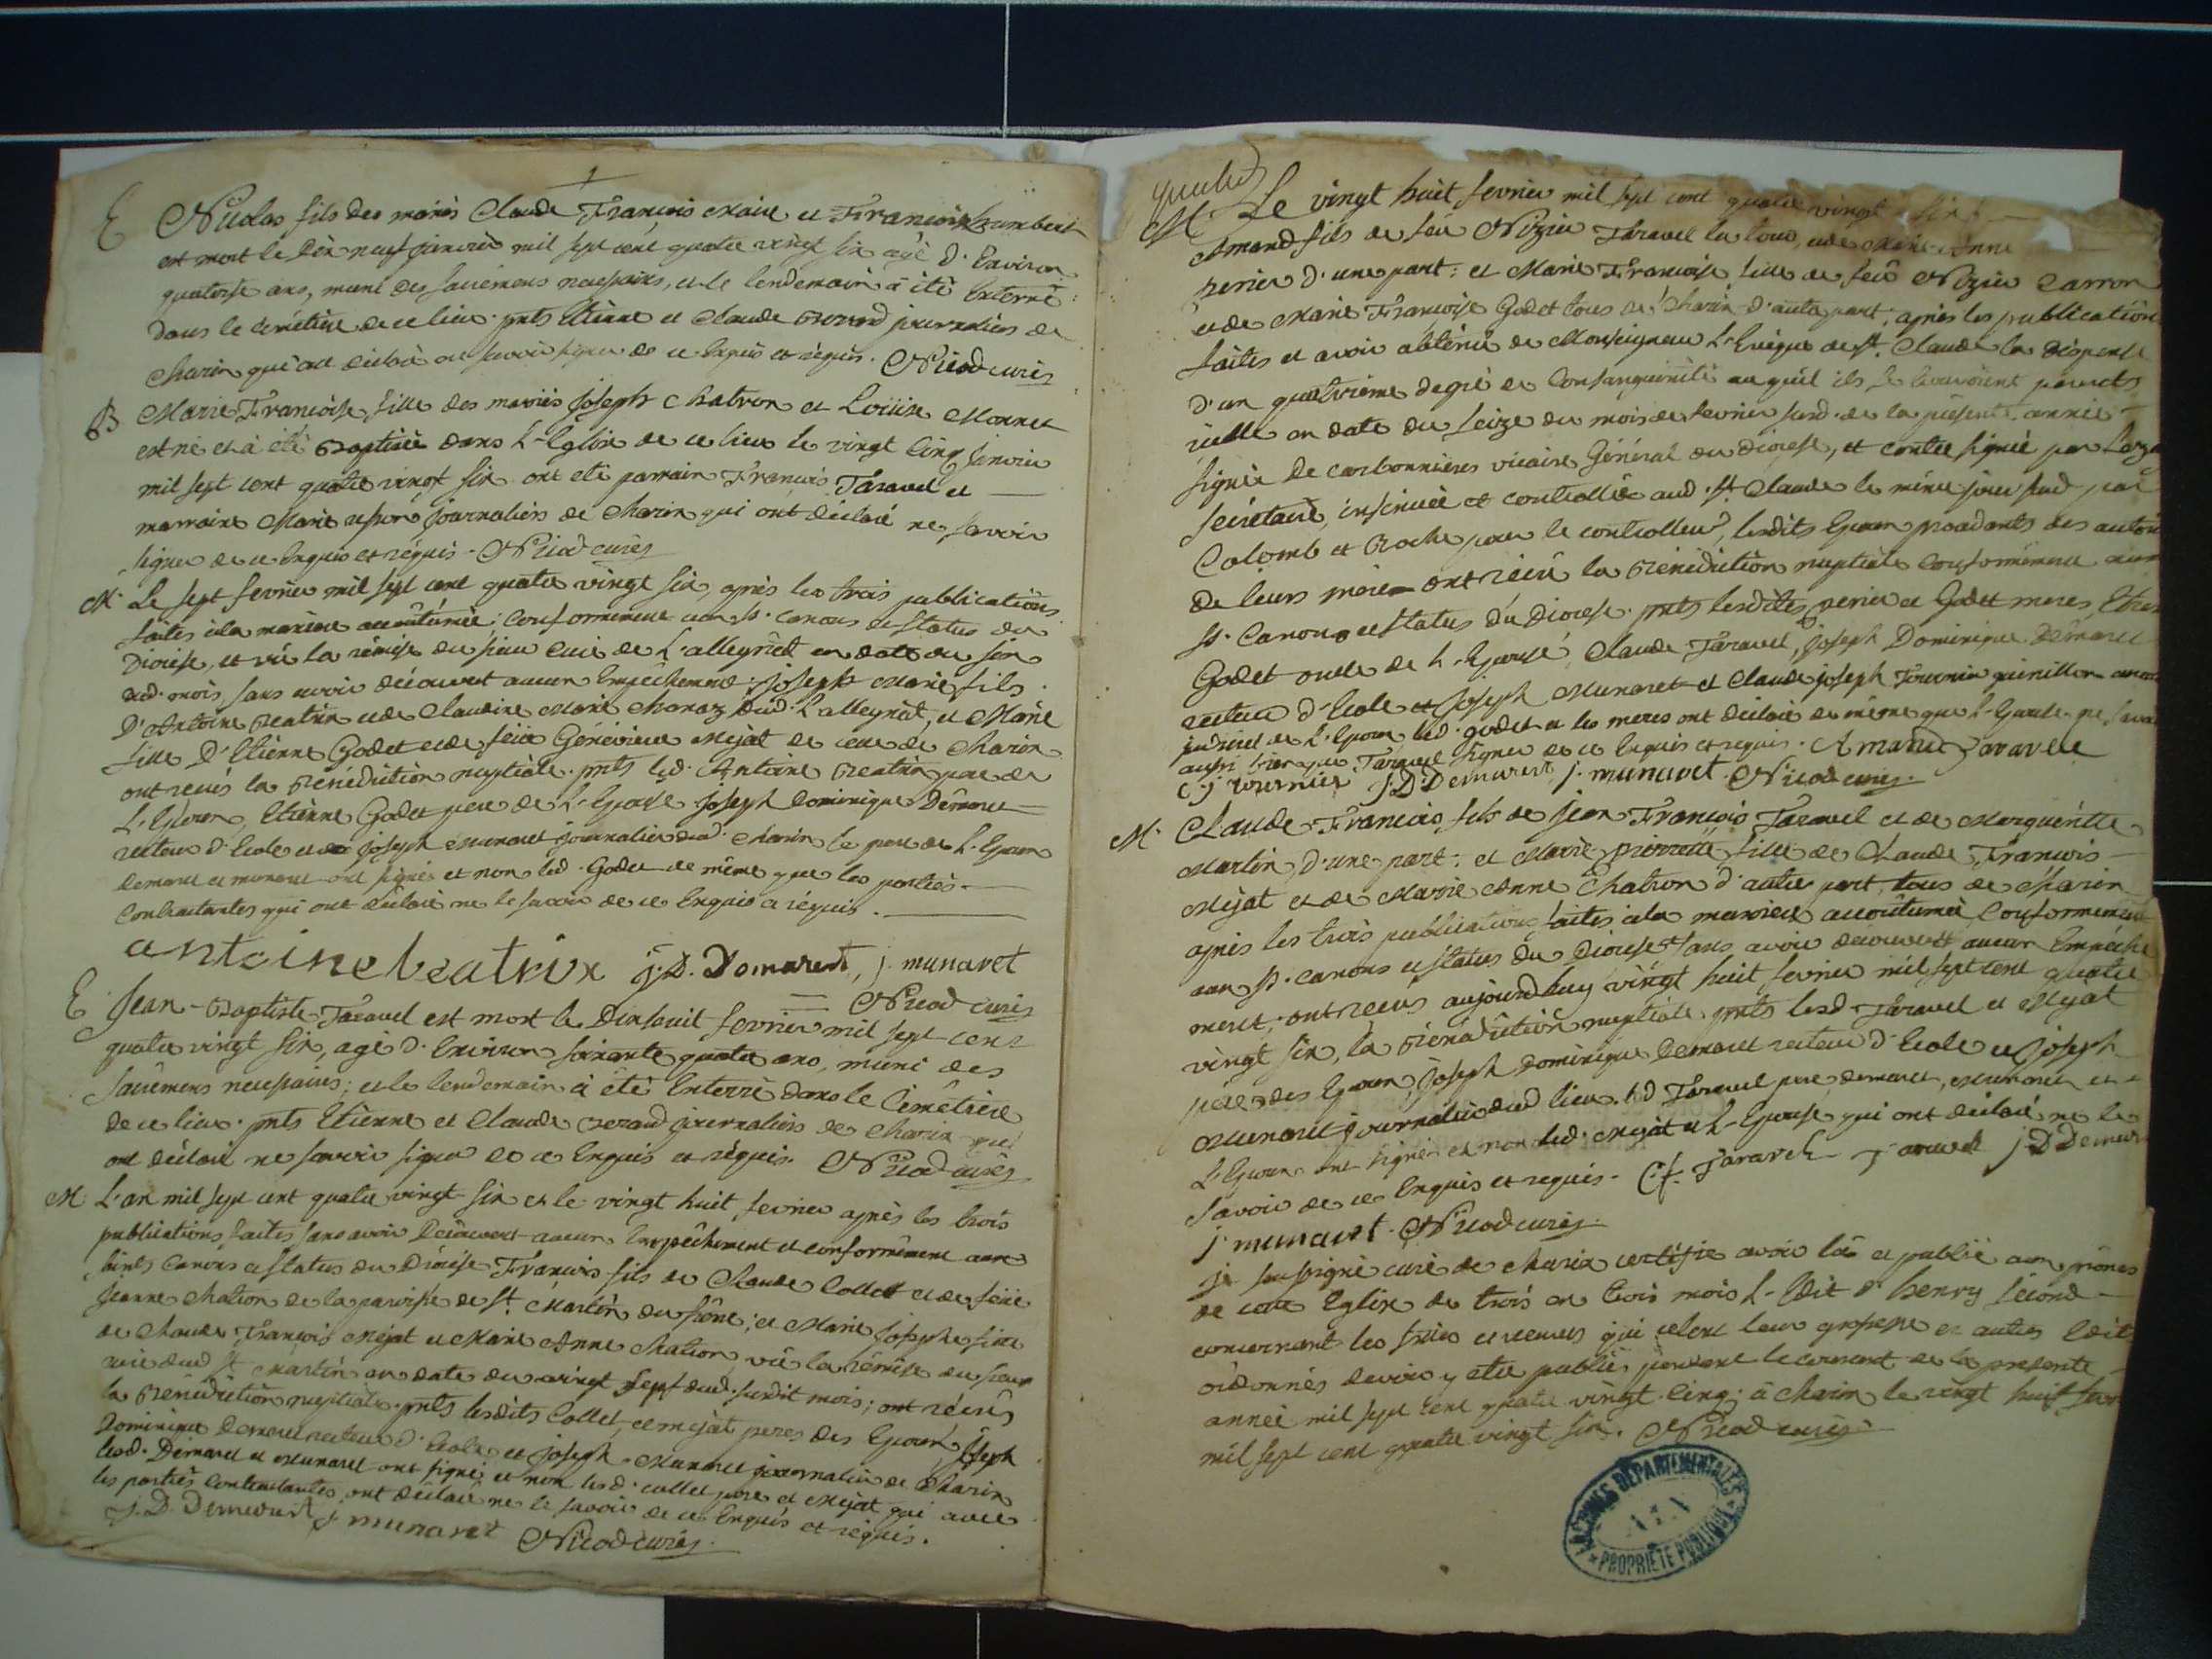 1
E Nicolas fils des mariés Claude François Maire et Françoise humbert
est mort le dix neuf janvier mil sept cent quatre vingt six agé d'Environ
quatorse ans, muni des sacrémens necessaires, et le lendemain à été Enterré
dans le cimétiere de ce lieu. pnts Etienne et Claude berrod journaliers de
Charix qui ont déclaré ne savoir signer de ce Enquis et réquis. Nicod curé
B Marie Francoise fille des mariés Joseph Chatron et Loüise Monnet
est né et à été Baptisée dans L'Eglise de ce lieu le vingt Cinq janvier
mil sept cent quatre vingt six ont eté parrain François Taravel et
marraine Marie journaliers de Charix qui ont déclaré ne savoir
signer de ce Enquis et réquis. Nicod curé
M. Le sept fevrier mil sept cent quatre vingt six, après les trois publications
faites à la maniere accoûtumée; Conformement aux st. canons et statuts du
Diocèse, et vû la rémise du sieur Curé de L'alleyriat en date du six
dud. mois, sans avoir découvert aucun Empêchement. joseph Marie fils
D'Antoine Beatrix et de Claudine Marie Monaz dud. L'alleyriat, et Marie
fille D'Etienne Godet et de feüe Génévieve Méjat de ceux de Charix
ont recus la Bénédiction nuptiale. pnts led. Antoine Beatrix pere de
L'Epoux, Etienne Godet pere de L'Epouse Joseph Dominique Démaret
recteur d'Ecole et de Joseph Munaret journalier dud. Charix le pere de L'Epoux
Demaret et munaret ont signé et non led. Godet de même que les parties
Contractantes qui ont déclaré ne le savoir de ce Enquis et réquis.
antoine beatrix j.D. Demaret, j. munaret
Nicod curé
E Jean-Baptiste Taravel est mort le Dixhuit fevrier mil sept cent
quatre vingt six, agé d'Environ soixante quatre ans, muni des
Sacrêmens necessaires; et le lendemain à été Enterré dans le Cimêtiere
de ce lieu. pnts Etienne et Claude berrod journaliers de Charix qui
ont déclaré ne savoir signer de ce Enquis et réquis. Nicod curé
M. L'an mil sept cent quatre vingt six et le vingt huit fevrier après les trois
publications faites sans avoir Découvert aucun Empêchement et conformément aux
saints Canons et statuts du Diocèse François fils de Claude Collet et de feüe
Jeanne Chatron de la paroisse de St. Martin du frêne; et Marie Josephe fille
de Claude François Méjat et Marie Anne Chatron, vû la rémise du sieur
curé dud st Martin en date du vingt sept dud. susdit mois; ont récus
la Bénédiction nuptiale. pnts lesdits Collet, et mejat peres des Epoux Joseph
Dominique Demaret recteur d'Ecole et Joseph Munaret journalier de Charix
lesd. Demaret et Munaret ont signé et non lesd. collet pere et Mejat qui avec
les parties Contractantes ont déclaré ne le savoir de ce Enquis et réquis.
J.D. Demaret j munaret Nicod curé
M. Le vingt huit fevrier mil sept cent quatre vingt six
Amand fils de feû Nizier Taravel la tour, et de Marie Anne
perier d'une part: et Marie Francoise fille de feû Nizier Carron
et de Marie Françoise Godet tous de Charix d'autre part; après les publications
faites et avoir obténu de Monseigneur L'Evêque de St. Claude la Dispense
d'un quatrieme degré de Consanguinité auquel ils se trouvoient parents
icelle en date du seize du mois de fevrier susd. de la présente année
signée De carbonnieres vicaire Général du Diocese, et contre signée par
sécrétaire, insinuée et controllée aud. st Claude le même jour susd par
Colomb et Roche pour le controlleur, lesdits Epoux procédants des autorité
de leurs meres ont récu la Bénédiction nuptiale Conformément aux
st. Canons et statuts du Diocese. pnts lesdites perier et Godet meres, Etienne
Godet oncle de L'Epouse, Claude Taravel, Joseph Dominique Démaret
recteur d'Ecole et Joseph Munaret et Claude joseph Tournier
de L'Epoux led. godet et les meres ont déclaré de même que L'Epouse ne savoir
Taravel signer de ce Enquis et réquis. Amand Taravele
C.j tournier J.D Demaret j. munaret. Nicod curé.
M. Claude François fils de Jean François Taravel et de Marguéritte
Martin d'une part; et Marie pierrette fille de Claude François
Méjat et de Marie Anne Chatron d'autre part, tous de Charix
après les trois publications faites à la maniere accoûtumée Conformément
aux st. canons et statuts du Diocese sans avoir découvert aucun Empêche
ment; ont récus aujourdhuy vingt huit fevrier mil sept cent quatre
vingt six, la Bénédiction nuptiale pnts lesd. Taravel et Mejat
pere des Epoux, Joseph Dominique Demaret recteur d'Ecole et Joseph
Munaret journalier dud lieu. led Taravel pere demaret, munaret et
L'Epoux ont signé et non led. Mejat et L'Epouse qui ont déclaré ne le
savoir de ce Enquis et requis. C.f. Taravel j D Demaret
j. munaret. Nicod curé.
je soussigné curé de Charix certifie avoir lû et publié aux prônes
de cette Eglise de trois en trois mois L'Edit d'henry sécond
concernant les filles et veuves qui celent leur grossesse et autres Edits
ordonnés devoir y etre publiés pendant le courant de la presente
année mil sept cent quatre vingt cinq; à charix le vingt huit fevrier
mil sept cent quatre vingt six. Nicod curé
ARCHIVES DÉPARTEMENTALES
PROPRIÉTÉ PUBLIQUE